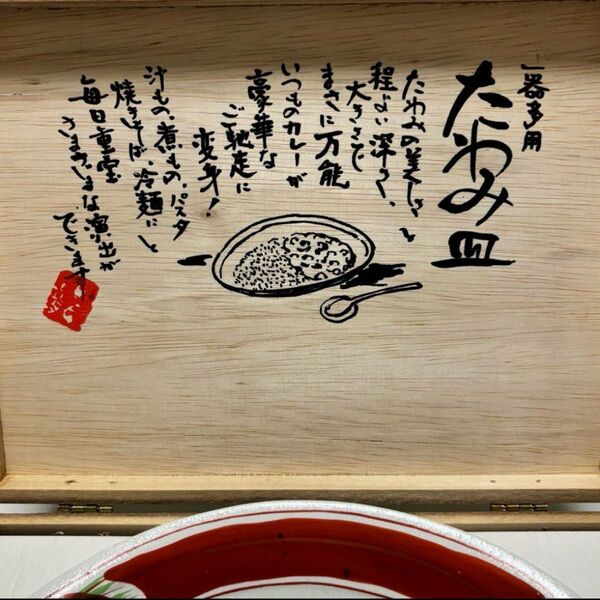 一器多用
たわみ皿
たわみの美しさと
程よい深さ、
大きさで
まさに万能
いつものカレーが
豪華な
ご馳走に
変身!
汁もの、煮もの、パスタ
焼きそば、冷麺にと
毎日重宝
さまざまな演出が
できます。